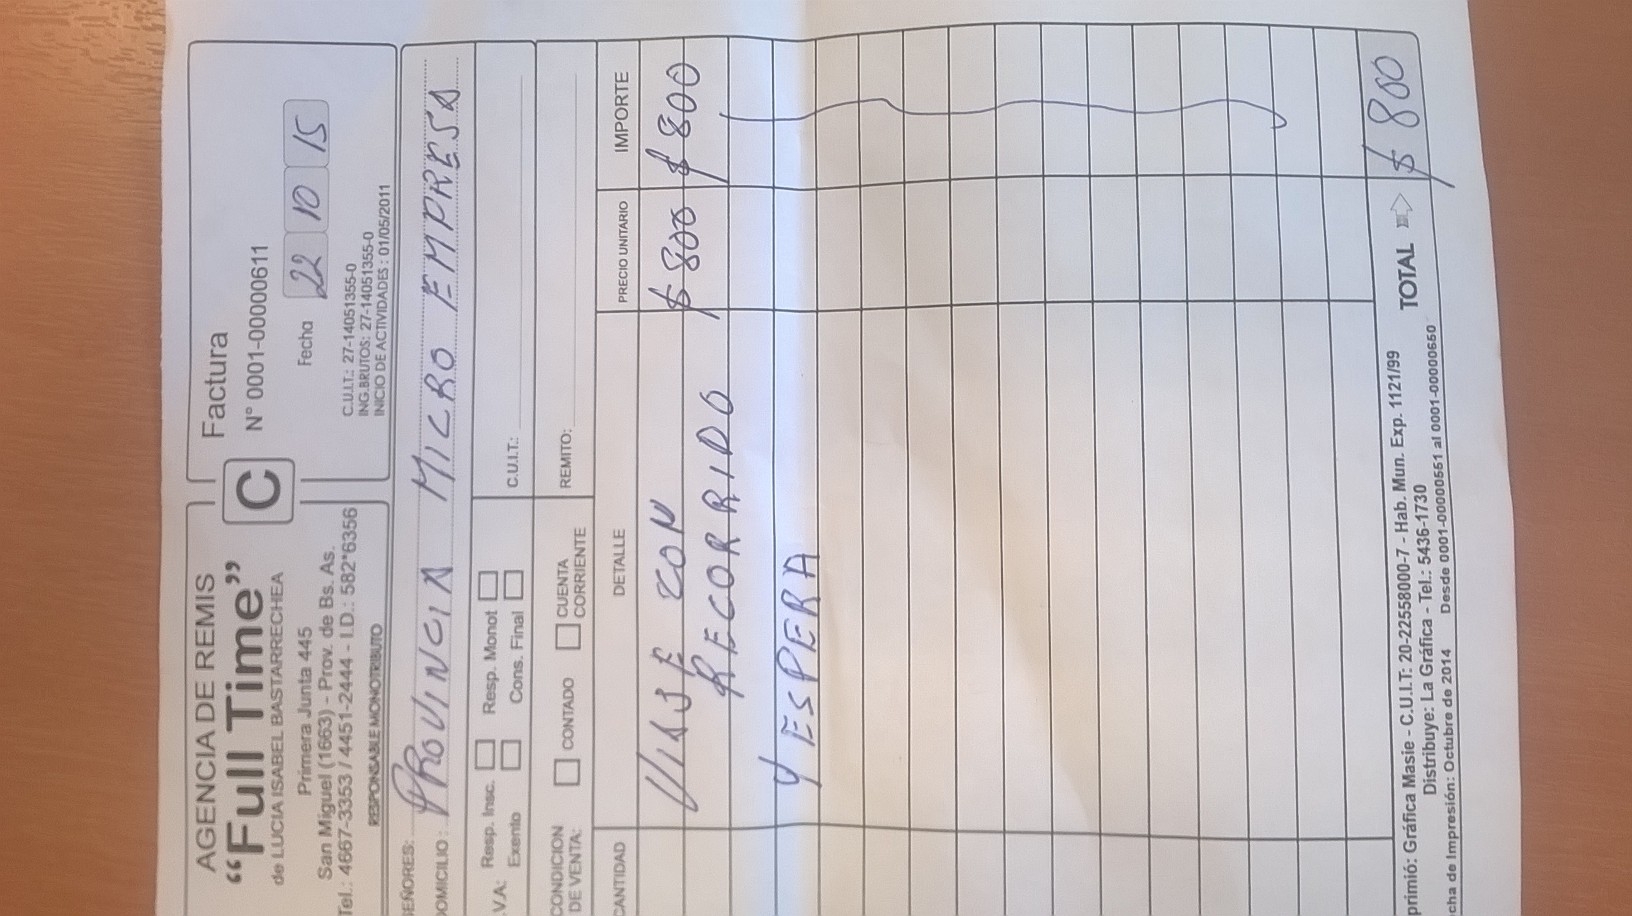 AGENCIA DE REMIS
“Full Time”
de LUCIA ISABEL BASTARRECHEA
Primera Junta 445
San Miguel (1663) - Prov. de Bs. As.
Tel.: 4667-3353 / 4451-2444 - I.D.: 582*6356
RESPONSABLE MONOTRIBUTO
C
Factura
N° 0001-00000611
Fecha 22 10 15
C.U.I.T.: 27-14051355-0
ING.BRUTOS: 27-14051355-0
INICIO DE ACTIVIDADES : 01/05/2011
EÑORES: PROVINCIA MICRO EMPRESA
DOMICILIO:
.V.A: Resp. Insc. Resp. Monot
Exento Cons. Final C.U.I.T.:
CONDICION DE VENTA: CONTADO CUENTA CORRIENTE REMITO:
CANTIDAD DETALLE PRECIO UNITARIO IMPORTE
VIAJE CON $ 800 $ 800
RECORRIDO
Y ESPERA
TOTAL $ 800
primió: Gráfica Masie - C.U.I.T: 20-22558000-7 - Hab. Mun. Exp. 1121/99
Distribuye: La Gráfica - Tel.: 5436-1730
cha de Impresión: Octubre de 2014 Desde 0001-00000551 al 0001-00000650